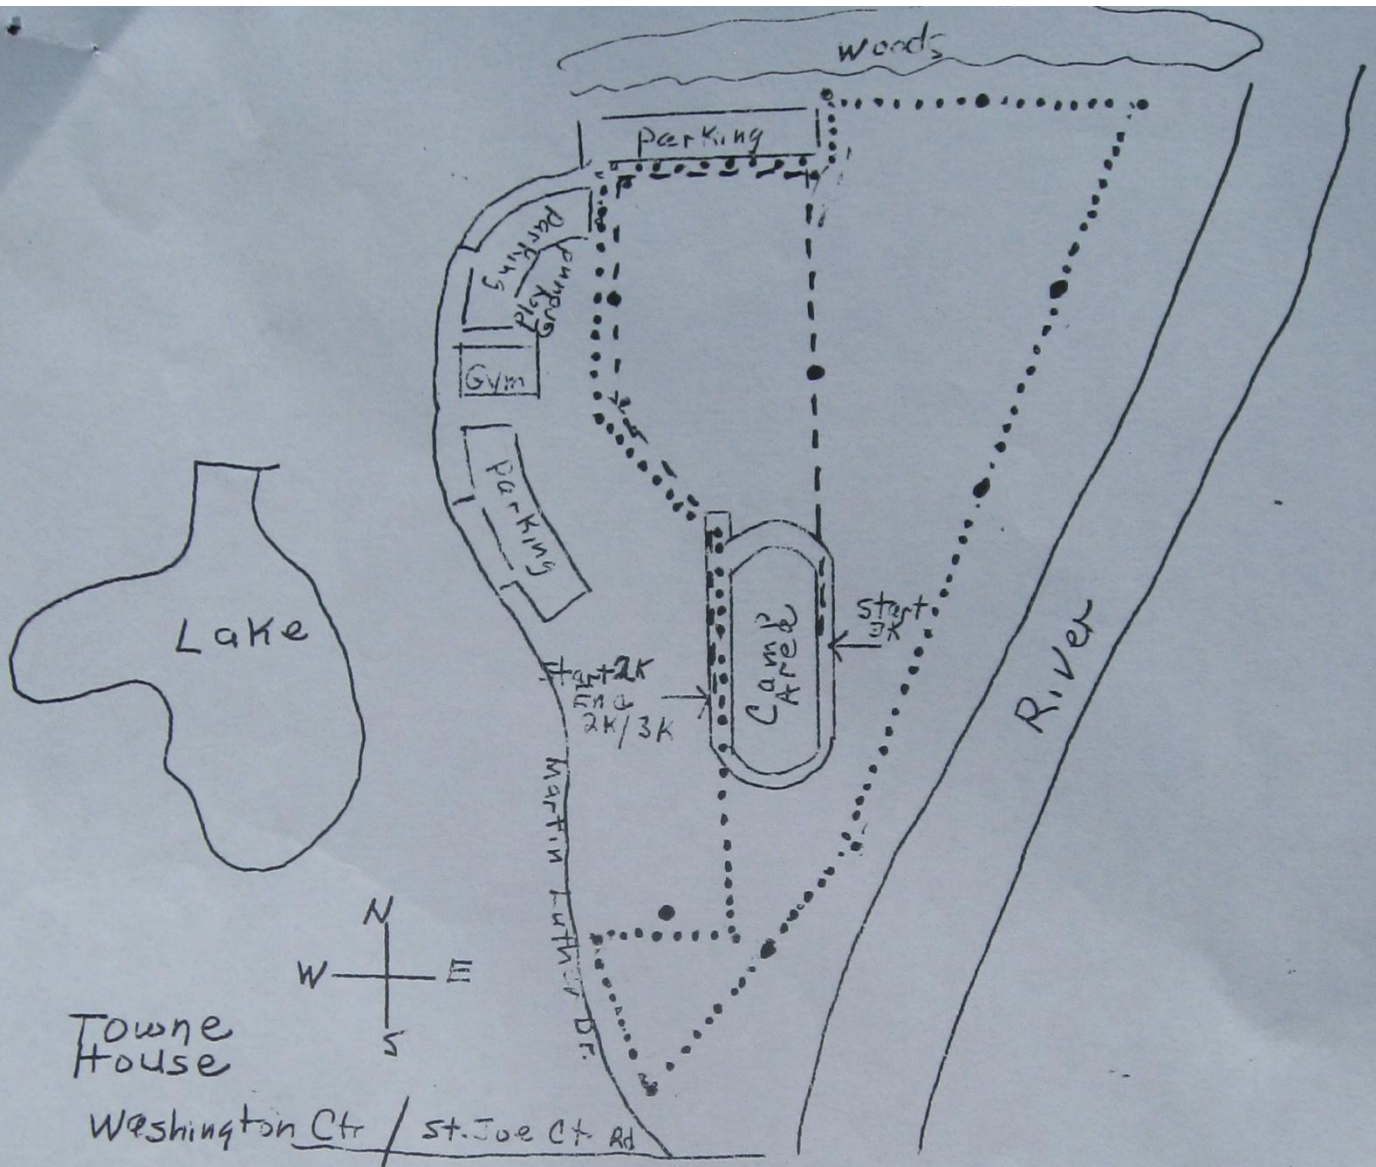 Woods
Parking
Parking
Play
Ground
Gym
Parking
Lake
Camp
Area
Start
Start 2K
2K/3K
River
Martin Luther Dr.
N
W
E
S
Towne
House
Washington Ctr / St. Joe Ct. Rd